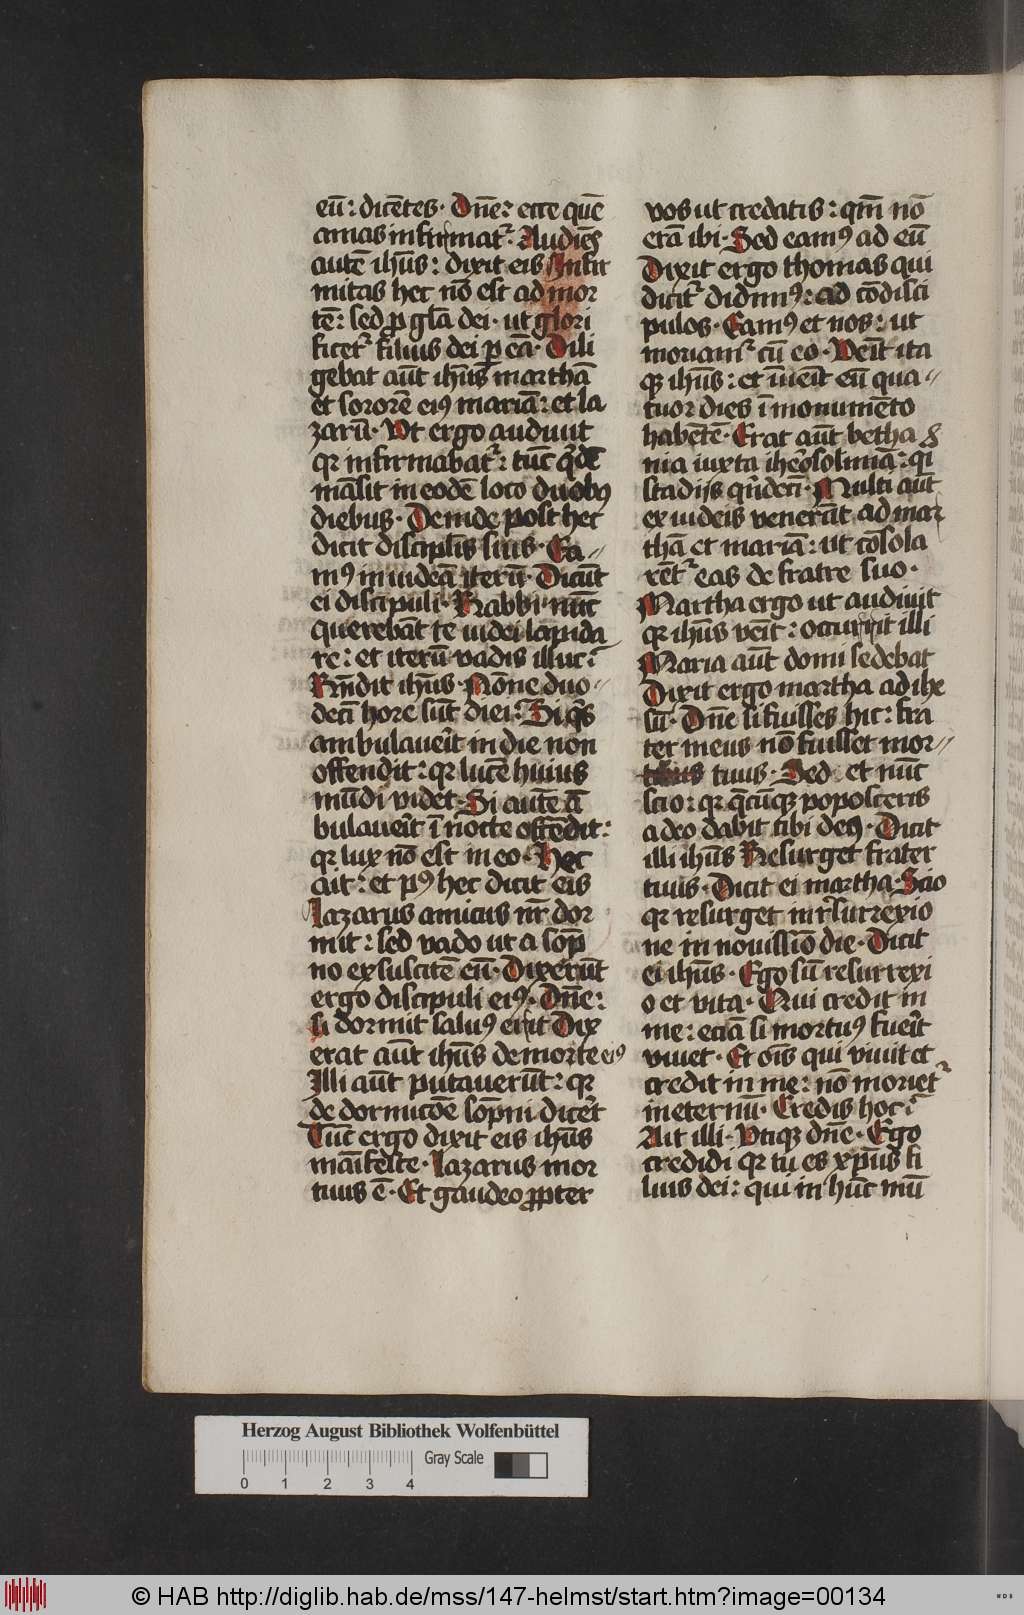 eū: dicētes· Dn̄e: ecce quē
amas infirmat᷑· Audiēs
autē ihūs: dixit eis Infir
mitas hec nō est ad mor
tē: sed ꝓ gl̄a dei· ut glori
ficet᷑ filius dei ꝑ eā· Dili
gebat aūt ihūs marthā
et sororē eiꝰ mariā: et la
zarū· Ut ergo audiuit
qꝛ infirmabat᷑: tūc qͥdē
māsit in eodē loco duobꝰ
diebus· Deinde post hec
dicit discipl̄is suis· Ea⸗
mꝰ in iudeā iterū· Dicūt
ei discipuli· Rabbi· nūc
querebāt te iudei lapida
re: et iterū vadis illuc?
Rn̄dit ihūs· Nōne duo⸗
decī hore sūt diei? Si qͥs
ambulauer̄it in die non
offendit: qꝛ lucē huius
mūdi videt· Si autē ā
bulauer̄it ī nocte offēdit:
qꝛ lux nō est in eo· Hec
ait: et pꝰ hec dicit eis
Lazarus amicus nr̄ dor
mit: sed vado ut a sop̄
no exsuscitē eū· Dixerūt
ergo discipuli eiꝰ· Dn̄e:
si dormit saluꝰ erit Dix
erat aūt ihūs de morte eiꝰ
Illi aūt putauerūt: qꝛ
de dormicōe sop̄ni dicer̄t
Tūc ergo dixit eis ihūs
māifeste· Lazarus mor
tuus ē· Et gaudeo ꝓpter
vos ut credatis: qm̄ nō
erā ibi· Sed eamꝰ ad eū
Dixit ergo thomas qui
dicit᷑ didimꝰ: ad cōdisci
pulos· Eamꝰ et nos: ut
moriam᷑ cū eo· Ven̄it ita
qꝫ ihūs: et īuen̄it eū qua⸗
tuor dies ī monumēto
habētē· Erat aūt betha
nia iuxta iher̄osolimā: qͥ
stadijs qͥndecī· Multi aūt
ex iudeis venerāt ad mar
thā et mariā: ut cōsola
rēt᷑ eas de fratre suo·
Martha ergo ut audiuit
qꝛ ihūs ven̄it: occurrit illi
Maria aūt domi sedebat
Dixit ergo martha ad ihe
sū· Dn̄e si fuisses hic: fra
ter meus nō fuisset mor⸗
tuus· Sed et nūc
scio: qꝛ q̄cūqꝫ poposceris
a deo dabit tibi deꝰ· Dicit
illi ihūs Resurget frater
tuus· Dicit ei martha· Scio
qꝛ resurget in r̄surrexio
ne in nouissīo die· Dicit
ei ihūs· Ego sū resurrexi
o et vita· Qui credit in
me: eciā si mortuꝰ fuer̄it
viuet· Et oīs qui viuit et
credit in me: nō moriet᷑
in eternū· Credis hoc?
Ait illi· Utiqꝫ dn̄e· Ego
credidi qꝛ tu es xp̄us fi
lius dei: qui in hūc mū
Herzog August Bibliothek Wolfenbüttel
Gray Scale
0 1 2 3 4
© HAB http://diglib.hab.de/mss/147-helmst/start.htm?image=00134